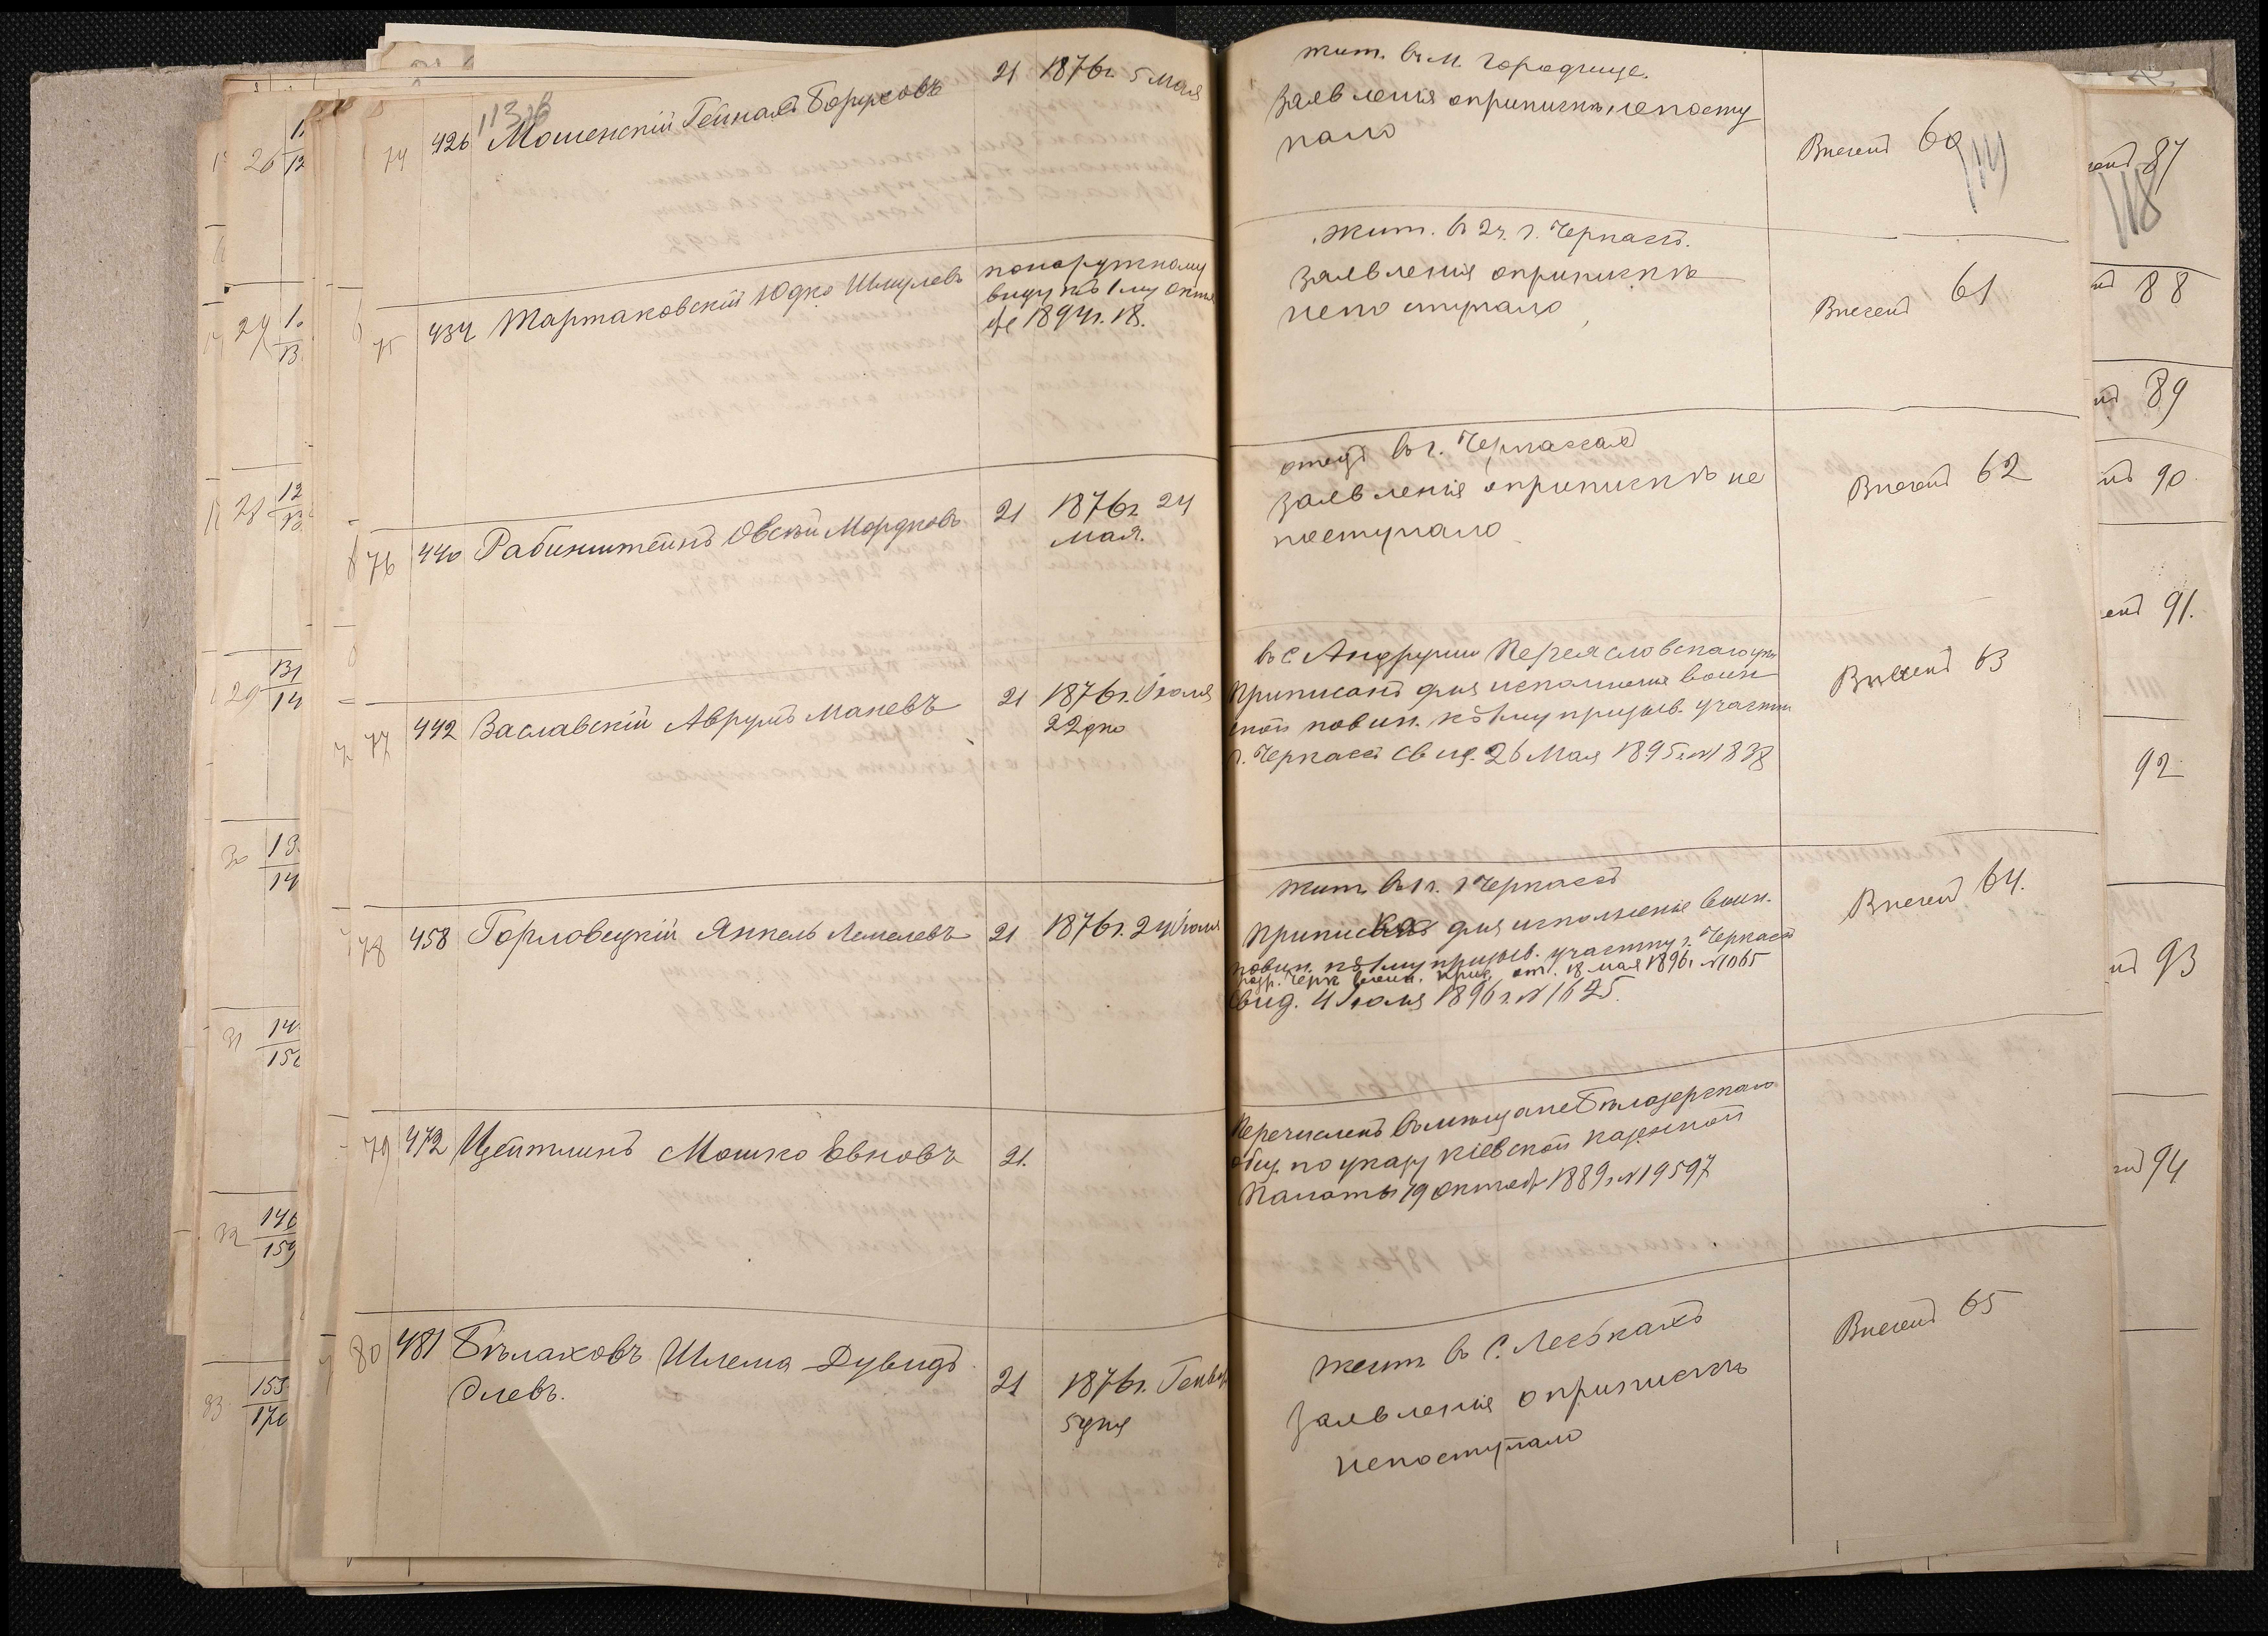 113 об
74 426 Мошенскій Гейнахъ Боруховъ 21 1876г. 5 Мая
жит. въ м. Городище.
Заявленія о припискѣ непосту
пало
Внесенъ 60
114
75 434 Тартаковскій Юдко Шмулевъ
понаружному
виду къ 1му Октя
бр 1894г. 18.
жит. в 2ч. г. Черкассъ.
Заявленія о припискѣ
непоступало
Внесенъ 61
76 440 Рабинштейнъ Овсѣй Мордковъ 21 1876г 24
Мая.
отецъ въ г. Черкассахъ
Заявленія о припискѣ не
поступало
Внесенъ 62
77 442 Заславскій Аврумъ Маневъ 21 1876г. Іюля
22 дня
въ с Андруши Переяславскаго у
Приписанъ для исполненія воин
ской повин. къ 1му призыв. участку
г. Черкассъ Свид. 26 Мая 1895г. № 1838
Внесенъ 63
78 458 Горловецкій Янкель Лемелевъ 21 1876г. 24 Іюля
жит. въ 1ч. г. Черкассъ
приписанъ для исполненіе воин.
повин. къ 1му призыв. участку г. Черкассъ
разр. Черк воин. прис. от. 18 мая 1896г. № 1065
Свид. 4 Іюля 1896г. № 1625.
Внесенъ 64.
79 472 Цейтлинъ Мошко Евновъ 21.
Перечисленъ въ мѣщане Бѣлозерскаго
общ. по указу Кіевской Казенной
Палаты 19 Октяб 1889г. № 19597
80 481 Бѣлаховъ Шлема Дувидъ
Элевъ.
21 1876г. Генвар
5 дня
жит. в с. Леськахъ
Заявленія о припискѣ
непоступало
Внесенъ 65
87
118
88
89
90
91.
92
93
94